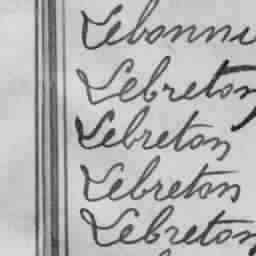 Lebonni
Lebreton
Lebreton
Lebreton
Lebreton